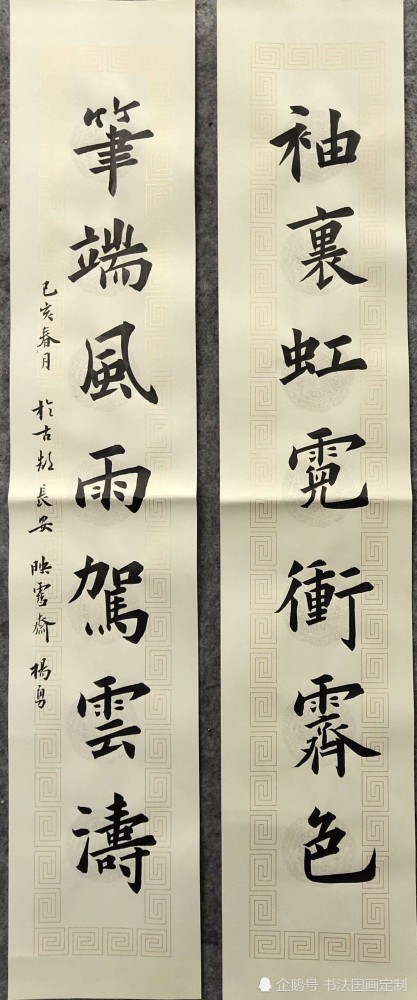 袖裏虹霓衝霽色
筆端風雨駕雲濤
己亥春月 於古都長安 映雪齋 楊勇
企鹅号 书法国画定制